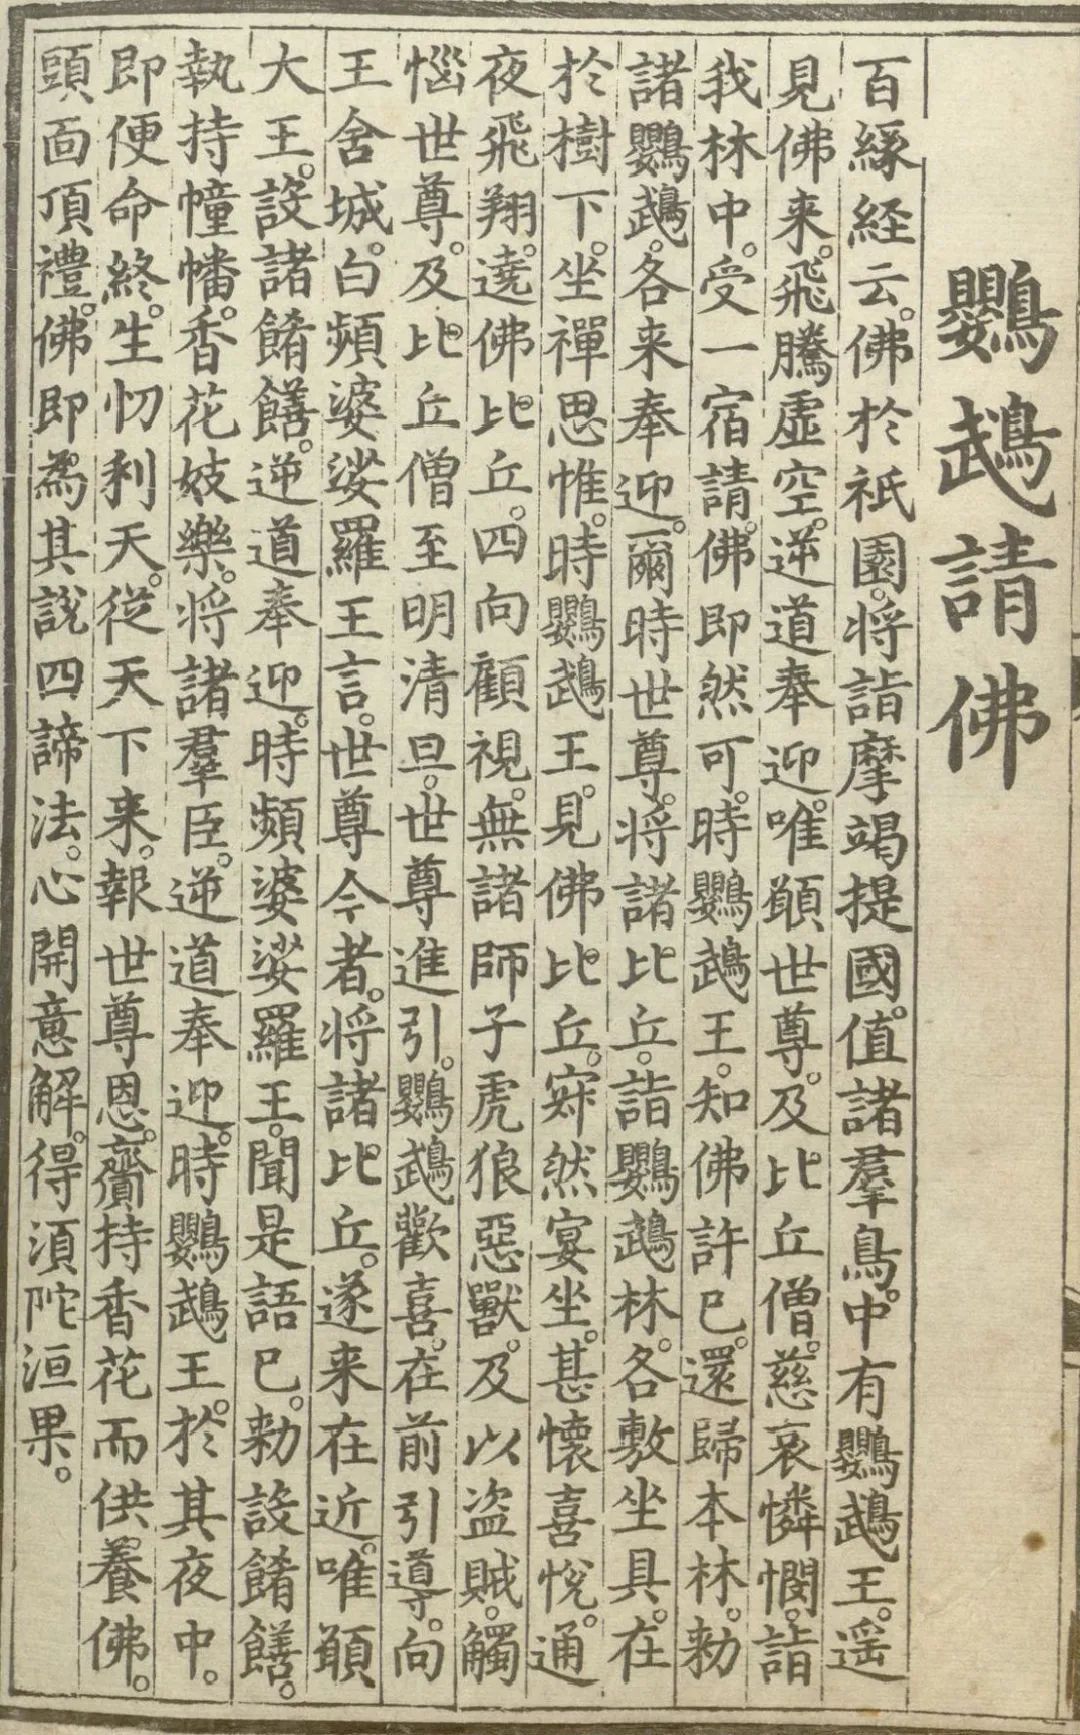 鸚鵡請佛
百緣経云。佛於祇園。将詣摩竭提國。值諸羣鳥。中有鸚鵡王。遥
見佛来。飛騰虚空。逆道奉迎。唯願世尊。及比丘僧。慈哀憐憫。詣
我林中。受一宿請。佛即然可。時鸚鵡王。知佛許已。還歸本林。勑
諸鸚鵡。各来奉迎。爾時世尊。将諸比丘。詣鸚鵡林。各敷坐具。在
於樹下。坐禪思惟。時鸚鵡王。見佛比丘。寂然宴坐。甚懷喜悅。通
夜飛翔。遶佛比丘。四向顧視。無諸師子虎狼惡獸。及以盗賊。觸
惱世尊。及比丘僧至明清旦。世尊進引。鸚鵡歡喜。在前引導。向
王舍城。白頻婆娑羅王言。世尊今者。将諸比丘。遂来在近。唯願
大王。設諸餚饍。逆道奉迎。時頻婆娑羅王。聞是語已。勑設餚饍。
執持幢幡。香花妓樂。将諸羣臣。逆道奉迎。時鸚鵡王。於其夜中。
即便命終。生忉利天。從天下来。報世尊恩。齎持香花而供養佛。
頭面頂禮。佛即為其說四諦法。心開意解。得湏陀洹果。